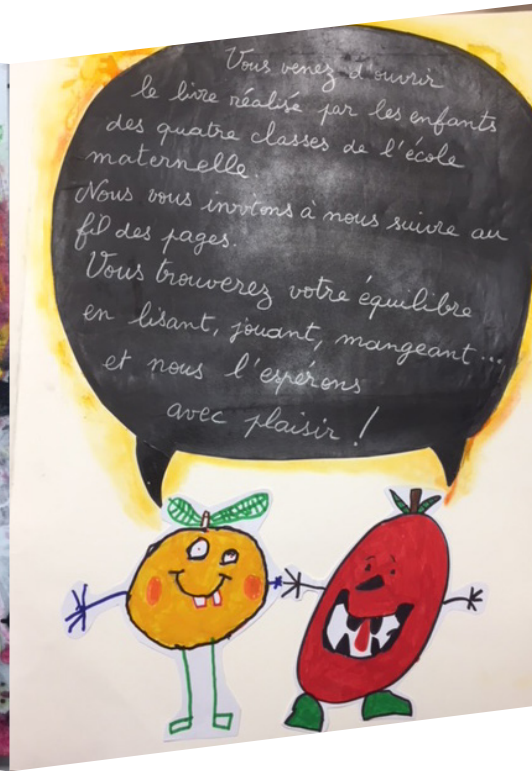 Vous venez d'ouvrir
le livre réalisé par les enfants
des quatre classes de l'école
maternelle.
Nous vous invitons à nous suivre au
fil des pages.
Vous trouverez votre équilibre
en lisant, jouant, mangeant...
et nous l'espérons
avec plaisir !